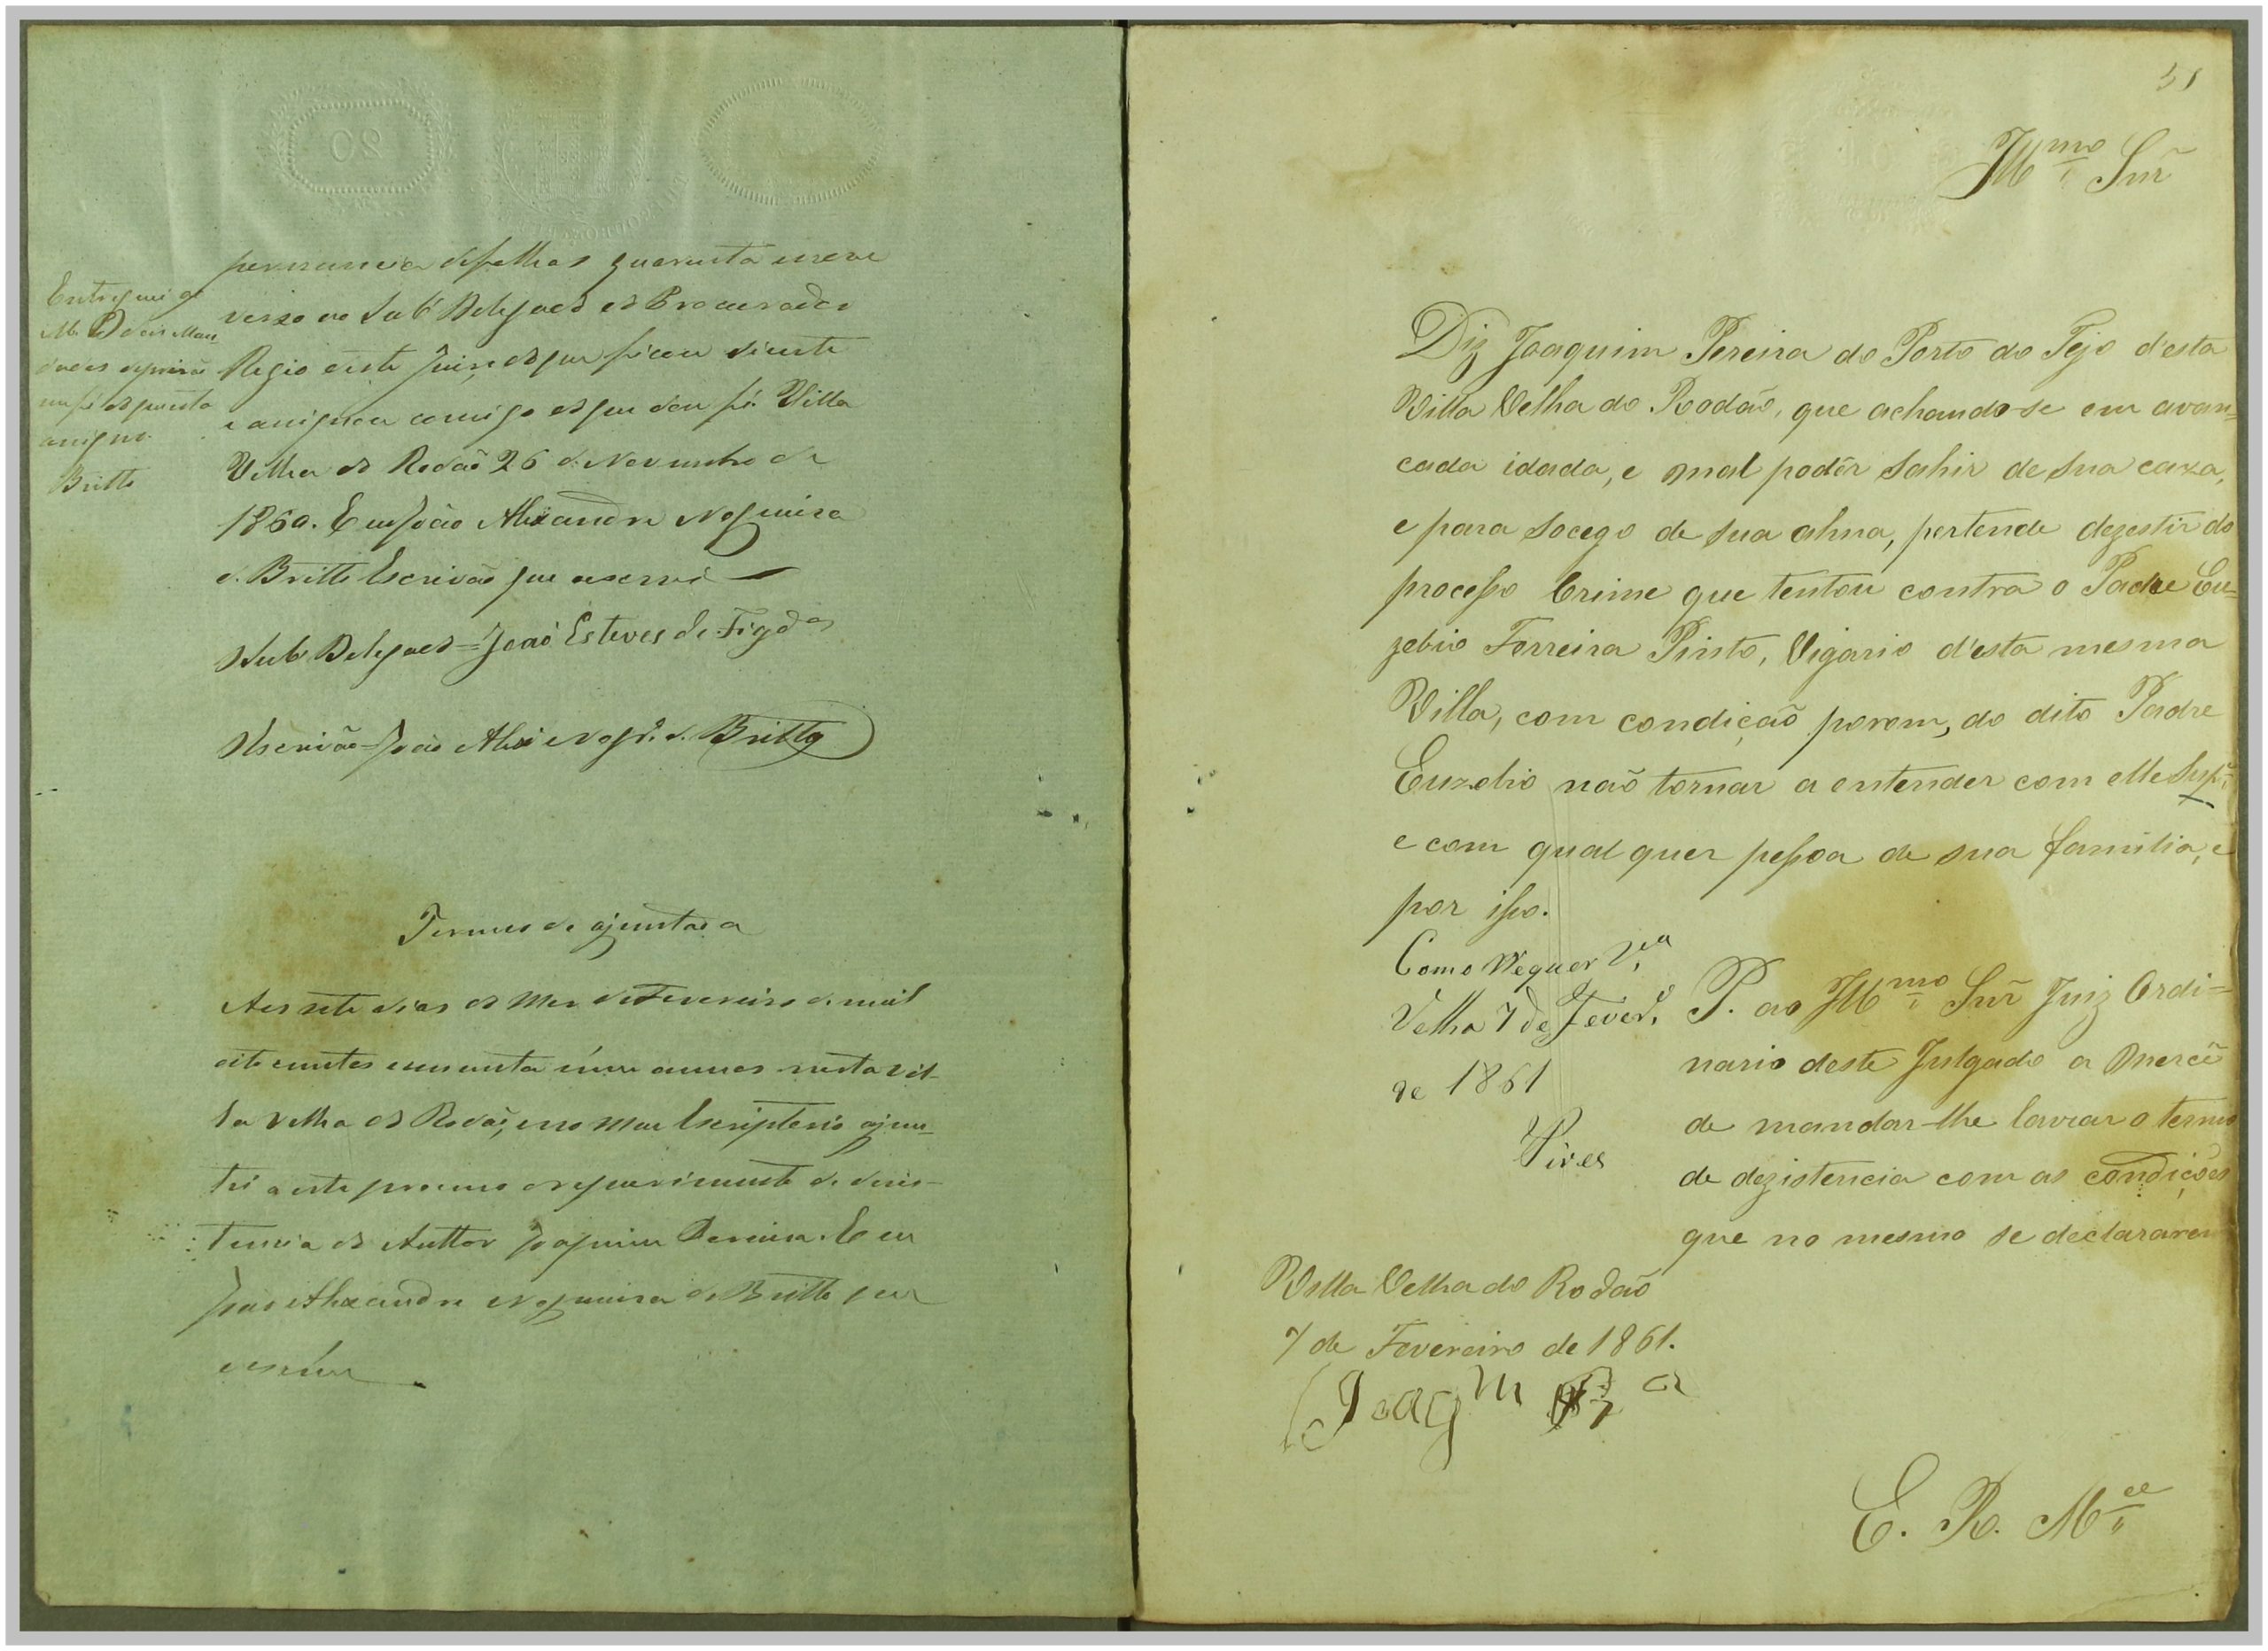 20
pernuncia de folhas quarenta e nove
verso ao Sub Delegado do Procurador
Regio neste Juizo do que ficou sciente
e asignou comigo do que dou fé. Villa
Velha do Rodaõ 26 de Novembro de
1860. E eu João Alexandre Nogueira
de Britto Escrivaõ que o escrevi
Sub Delegado = Joaõ Esteves de Figdo
O Escrivaõ = João Alexe Nogra de Britto
Entreguei os
Mandados de prizaõ
asigno.
Britto
Termo de ajuntada
Aos sete dias do Mez de Fevereiro de mil
oito centos e secenta e um annos nesta Vil-
la Velha do Rodaõ, e no meu Escriptorio ajun-
tei a este processo o requerimento de dezis-
tencia do Auttor Joaquim Pereira. E eu
João Alexandre Nogueira de Britto que
o escrevi
51
Illmo Snr
Diz Joaquim Pereira do Porto do Tejo d'esta
Villa Velha do Rodão, que achando-se em avan=
cada idada, e mal podêr sahir de sua caza,
e para socego de sua alma, pertende dezestir do
processo Crime que tentou contra o Padre Eu=
zebio Ferreira Pinto, Vigario d'esta mesma
Villa, com condição porem, do dito Padre
Euzebio naõ tornar a entender com elle Supe
e com qual quer pessoa de sua familia, e
por isso.
Como Requer Va
Velha 7 de Fevero
de 1861
Pires
P. ao Illmo Snr Juiz Ordi=
nario deste Julgado a mercê
de mandar-lhe lavrar o termo
de dezistencia com as condições
que no mesmo se declararem
Villa Velha do Rodão
7 de Fevereiro de 1861.
Joaqm Pra
E. R. Mce